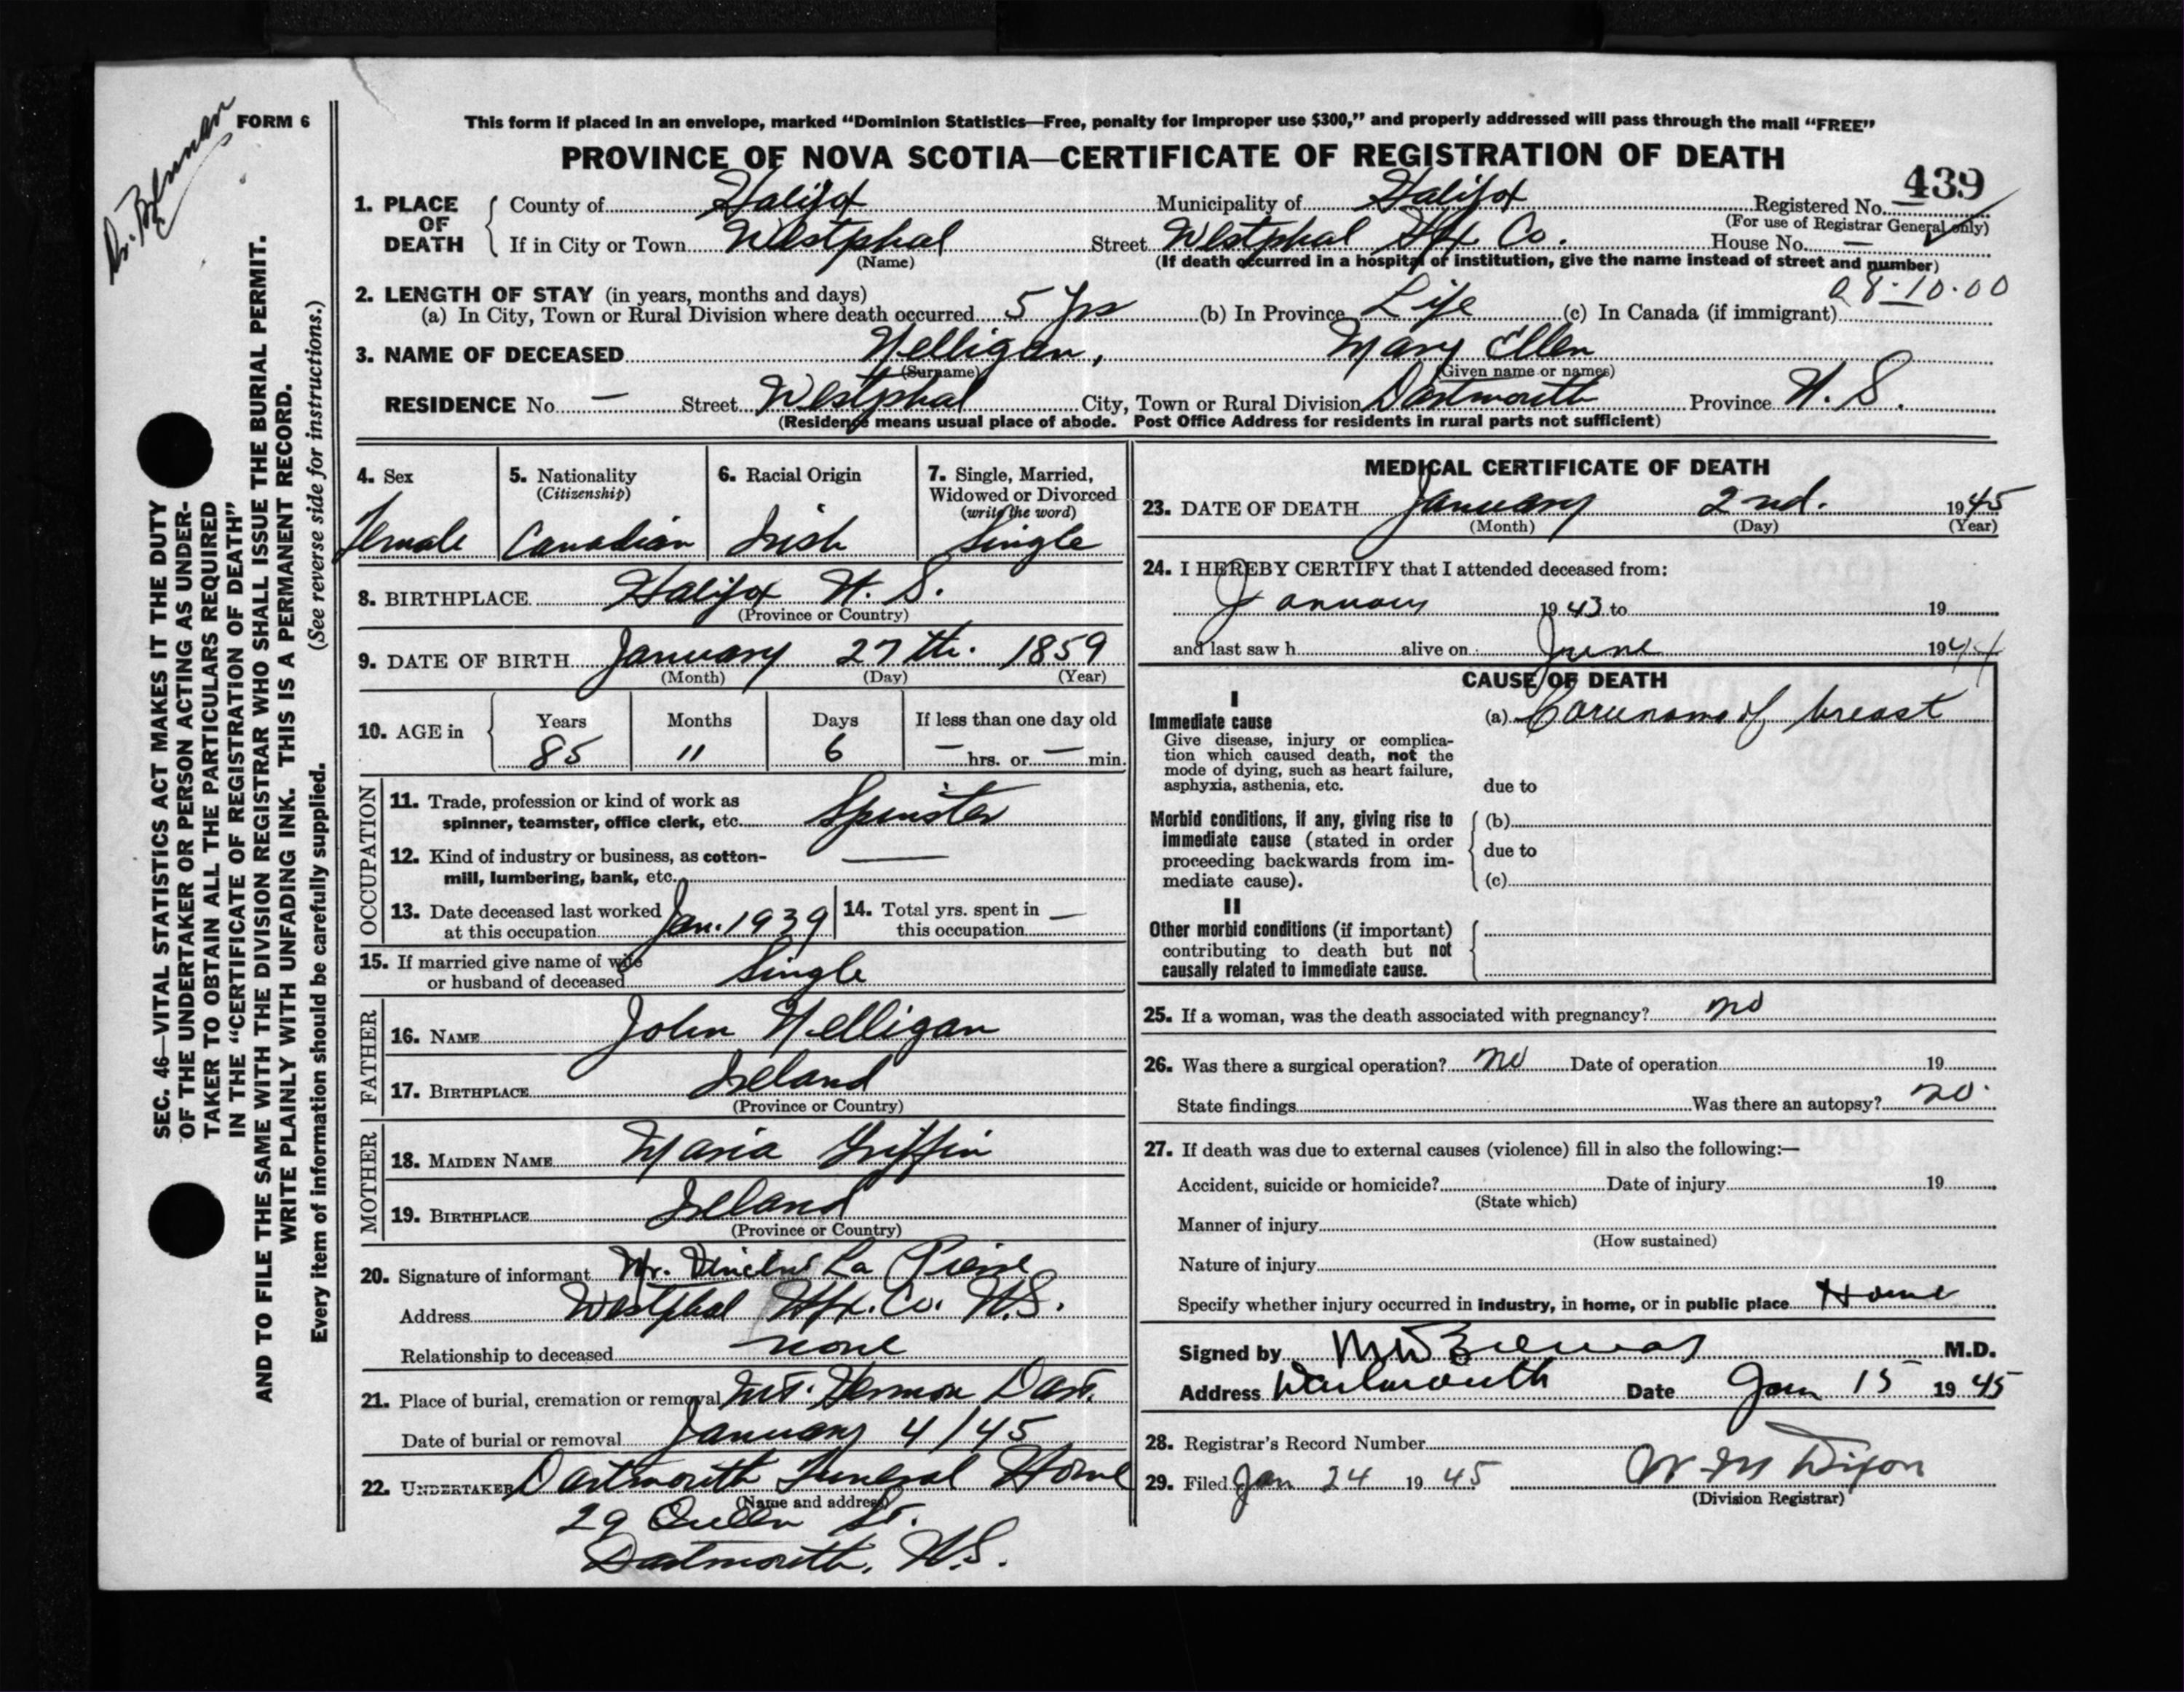 FORM 6
This form if placed in an envelope, marked “Dominion Statistics—Free, penalty for improper use $300,” and properly addressed will pass through the mail “FREE”
PROVINCE OF NOVA SCOTIA—CERTIFICATE OF REGISTRATION OF DEATH
439
1. PLACE OF DEATH County of Halifax Municipality of Halifax Registered No.
(For use of Registrar General only)
If in City or Town Westphal Street Westphal Hfx Co. House No. —
(Name) (If death occurred in a hospital or institution, give the name instead of street and number)
2. LENGTH OF STAY (in years, months and days) 08·10·00
(a) In City, Town or Rural Division where death occurred 5 yrs (b) In Province Life (c) In Canada (if immigrant)
3. NAME OF DECEASED Nelligan, Mary Ellen
(Surname) (Given name or names)
RESIDENCE No. — Street Westphal City, Town or Rural Division Dartmouth Province N. S.
(Residence means usual place of abode. Post Office Address for residents in rural parts not sufficient)
4. Sex Female
5. Nationality (Citizenship) Canadian
6. Racial Origin Irish
7. Single, Married, Widowed or Divorced (write the word) Single
8. BIRTHPLACE Halifax N. S.
(Province or Country)
9. DATE OF BIRTH January 27th. 1859
(Month) (Day) (Year)
10. AGE in Years Months Days If less than one day old
85 11 6 — hrs. or — min.
OCCUPATION
11. Trade, profession or kind of work as
spinner, teamster, office clerk, etc. Spinster
12. Kind of industry or business, as cotton-
mill, lumbering, bank, etc. —
13. Date deceased last worked
at this occupation Jan. 1939
14. Total yrs. spent in
this occupation —
15. If married give name of wife
or husband of deceased Single
FATHER
16. NAME John Nelligan
17. BIRTHPLACE Ireland
(Province or Country)
MOTHER
18. MAIDEN NAME Maria Griffin
19. BIRTHPLACE Ireland
(Province or Country)
20. Signature of informant Mr. La Pierre
Address Westphal Hfx. Co. N.S.
Relationship to deceased none
21. Place of burial, cremation or removal Mt. Hermon Dart.
Date of burial or removal January 4/45
22. UNDERTAKER Dartmouth Funeral Home
(Name and address)
29 Queen St.
Dartmouth, N.S.
MEDICAL CERTIFICATE OF DEATH
23. DATE OF DEATH January 2nd. 1945
(Month) (Day) (Year)
24. I HEREBY CERTIFY that I attended deceased from:
January 1943 to 19
and last saw h alive on June 1944
CAUSE OF DEATH
I
Immediate cause (a) Carcinoma of breast
Give disease, injury or complica-
tion which caused death, not the
mode of dying, such as heart failure,
asphyxia, asthenia, etc. due to
Morbid conditions, if any, giving rise to (b)
immediate cause (stated in order due to
proceeding backwards from im-
mediate cause). (c)
II
Other morbid conditions (if important)
contributing to death but not
causally related to immediate cause.
25. If a woman, was the death associated with pregnancy? no
26. Was there a surgical operation? no Date of operation 19
State findings Was there an autopsy? no.
27. If death was due to external causes (violence) fill in also the following:—
Accident, suicide or homicide? Date of injury 19
(State which)
Manner of injury
(How sustained)
Nature of injury
Specify whether injury occurred in industry, in home, or in public place Home
Signed by M.D.
Address Dartmouth Date Jan 15 1945
28. Registrar's Record Number
29. Filed Jan 24 1945 W M Dixon
(Division Registrar)
SEC. 46—VITAL STATISTICS ACT MAKES IT THE DUTY
OF THE UNDERTAKER OR PERSON ACTING AS UNDER-
TAKER TO OBTAIN ALL THE PARTICULARS REQUIRED
IN THE “CERTIFICATE OF REGISTRATION OF DEATH”
AND TO FILE THE SAME WITH THE DIVISION REGISTRAR WHO SHALL ISSUE THE BURIAL PERMIT.
WRITE PLAINLY WITH UNFADING INK. THIS IS A PERMANENT RECORD.
Every item of information should be carefully supplied. (See reverse side for instructions.)